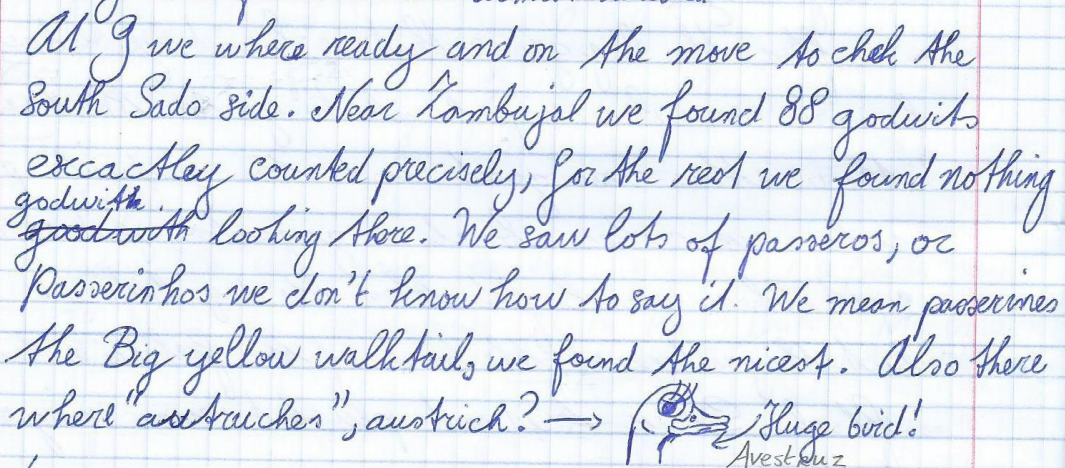 At 9 we where ready and on the move to chek the
South Sado side. Near Zambujal we found 88 godwits
exccactley counted precisely, for the rest we found nothing
godwith.
goodwith looking there. We saw lots of passeros, or
Passerinhos we don't know how to say it. We mean passerines
the Big yellow walktail, we found the nicest. Also there
where "autruches", austrich? → Huge bird!
Avestruz